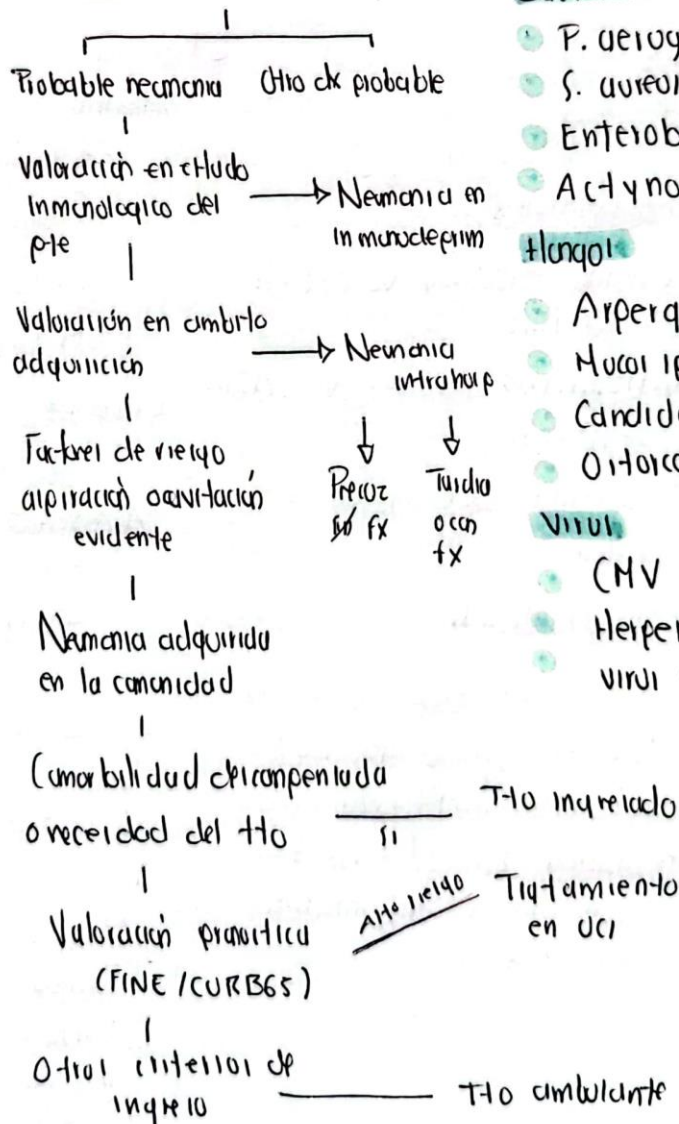 Probable neumonia Otro dx probable
Valoración en estado
inmunologico del
pte
Neumonia en
inmunodeprim
Valoración en ambito
adquisición
Neumonia
intrahosp
Precoz
fx
Tardia
o con
fx
Factores de riesgo
aspiración o cavitación
evidente
Neumonia adquirida
en la comunidad
Comorbilidad descompensada
o necesidad del tto
si
Tto ingresado
Valoración pronostica
(FINE/CURB65)
Alto riesgo
Tratamiento
en UCI
Otros criterios de
ingreso
Tto ambulante
P. aerug
S. aureus
Enterob
Actyno
Hongos
Asperg
Mucor sp
Candid
Virus
CMV
Herpes
virus